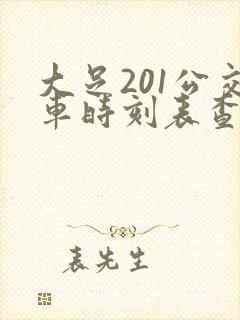 大足201公交
車時刻表查
表先生